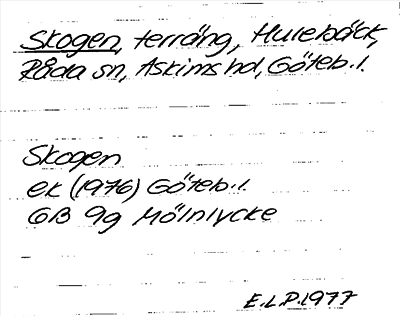 Skogen, terräng, Hulebäck,
Råda sn, Askims hd, Göteb.l.
Skogen
ek (1976) Göteb.l.
6B 9g Mölnlycke
E.L.P.1977